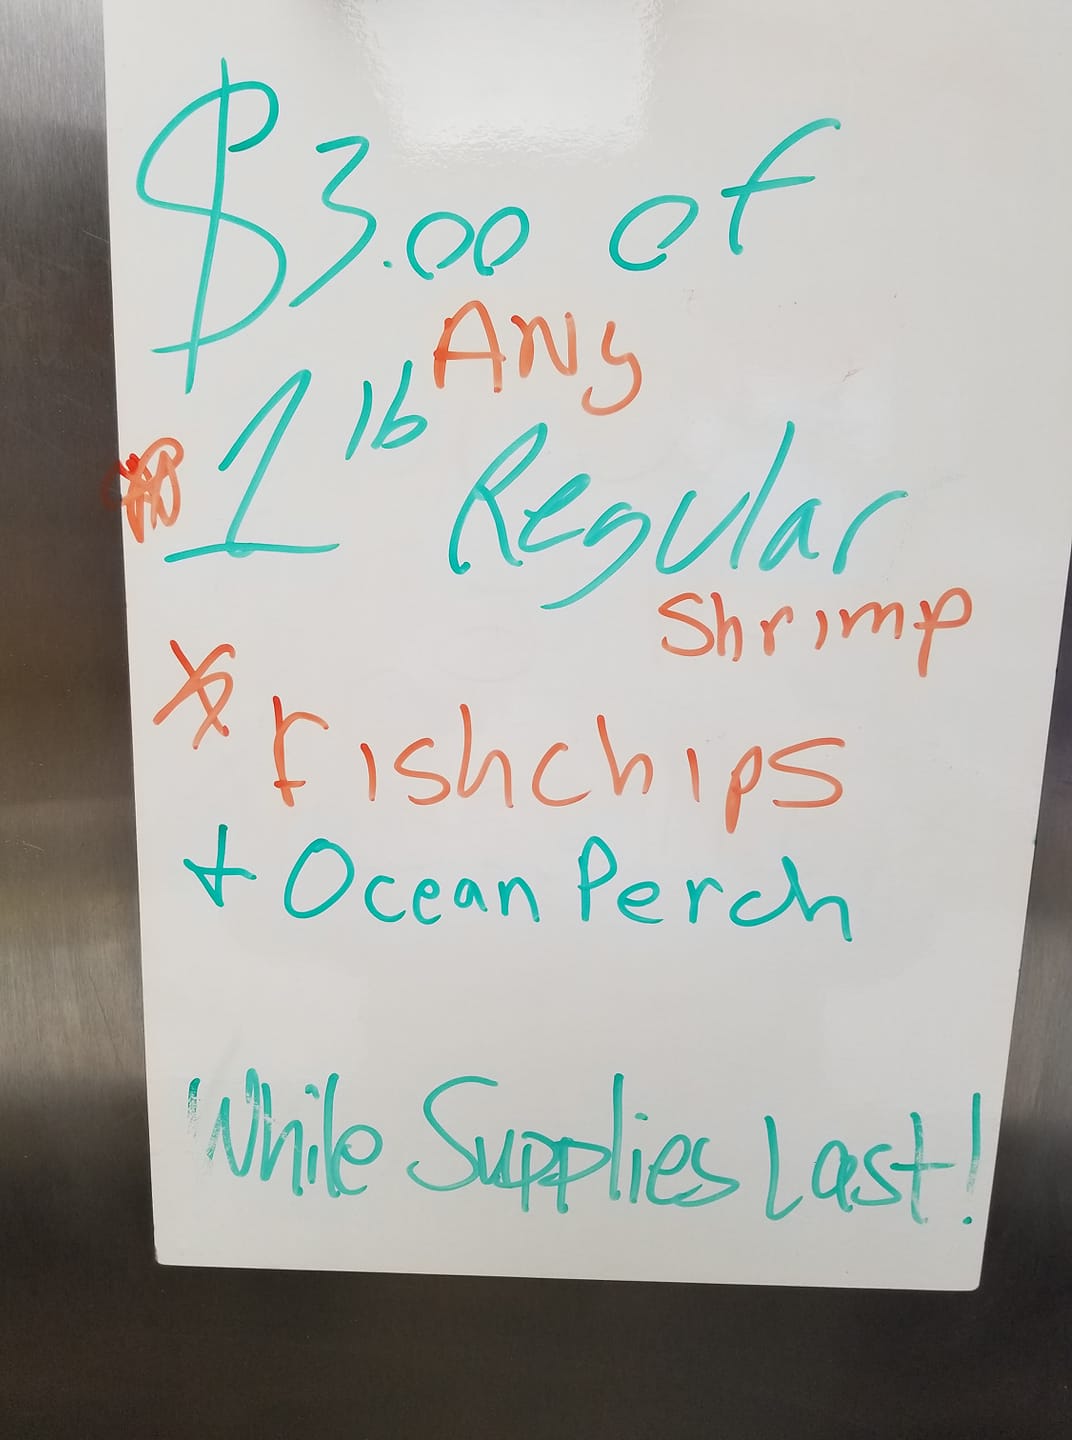 $3.00 of
ANy
1 lb Regular
Shrimp
* Fishchips
+ Ocean Perch
While Supplies Last!